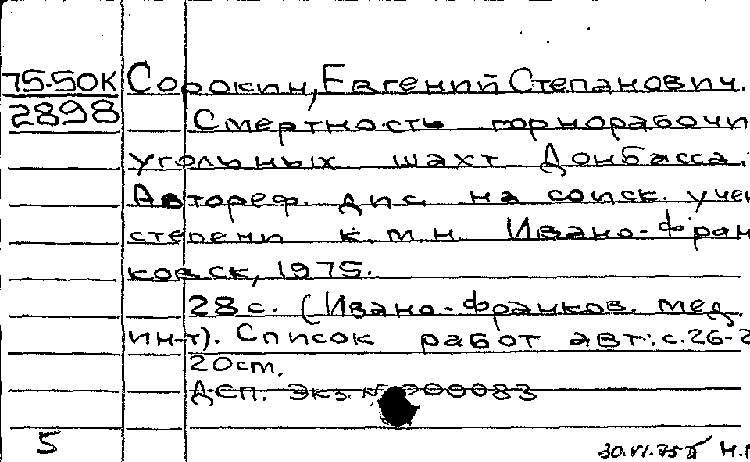 75-50К Сорокин, Евгений Степанович.
2898 Смертность горнорабочи
угольных шахт Донбасса.
Автореф. дис. на соиск. учен
степени к.м.н. Ивано-Фран
ковск, 1975.
28 с. (Ивано-франков. мед.
ин-т). Список работ авт.: с.26-2
20ст.
ДСП. Экз. № 000083
5 30.VI.75 Н.